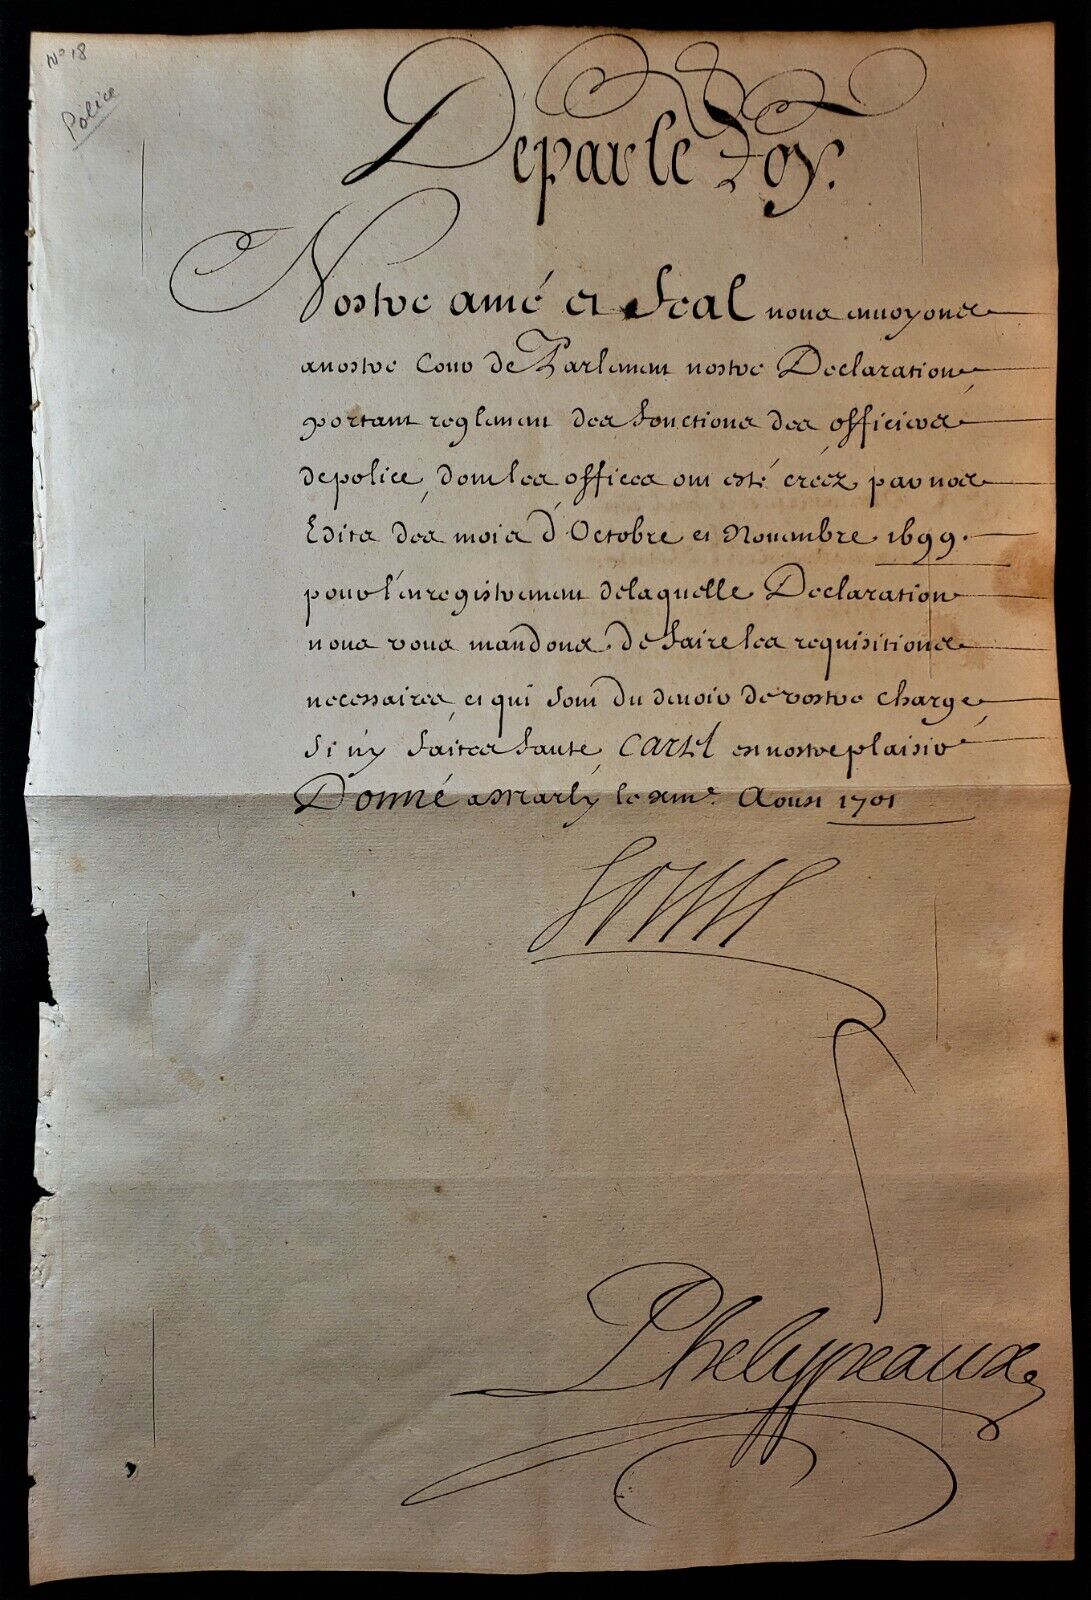 N° 18
Police
De par le Roy.
Nostre amé et feal nous envoyons
a nostre Cour de Parlement nostre Declaration
portant reglement des fonctions des officiers
de police, dont les offices ont esté créez par nos
Edits des mois d'Octobre et Novembre 1699.
pour l'enregistrement de laquelle Declaration
nous vous mandons de faire les requisitions
necessaires, et qui sont du devoir de vostre charge,
Si n'y faites faute, CAR tel est nostre plaisir
Donné a Marly le Aoust 1701
Louis
Phelypeaux